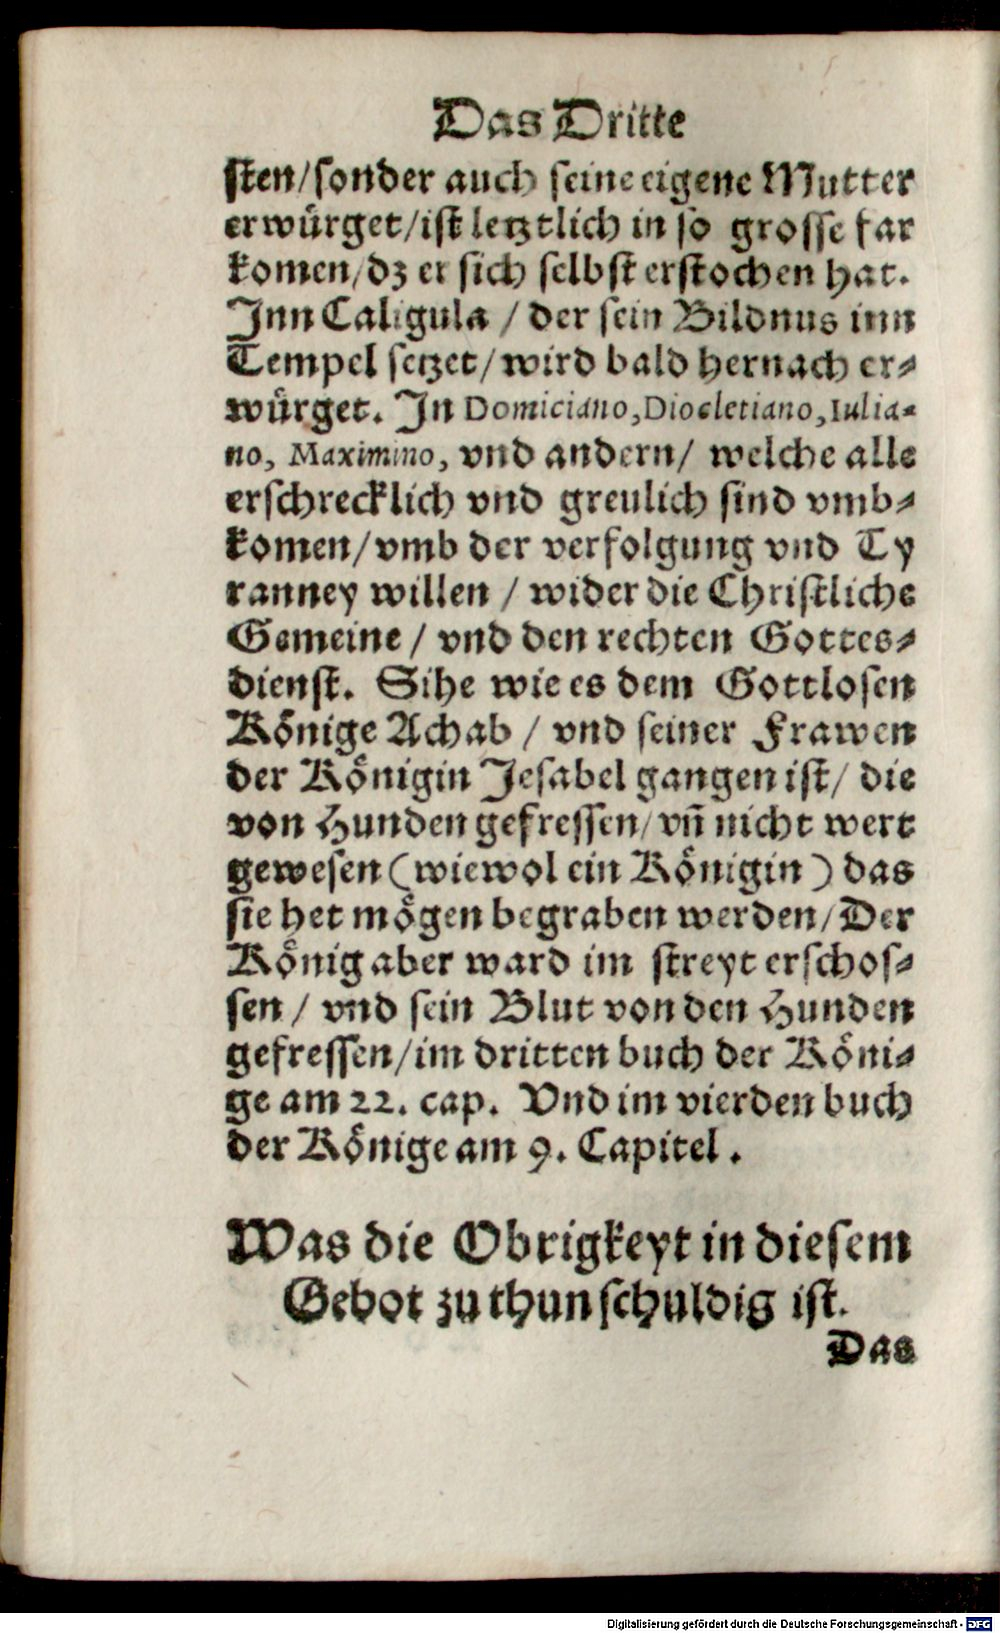 Das Dritte
sten/sonder auch seine eigene Mutter
erwürget/ist letztlich in so grosse far
komen/dz er sich selbst erstochen hat.
Inn Caligula / der sein Bildnus inn
Tempel setzet/wird bald hernach er-
würget. In Domiciano, Diocletiano, Iulia-
no, Maximino, vnd andern/ welche alle
erschrecklich vnd greulich sind vmb-
komen/vmb der verfolgung vnd Ty
ranney willen / wider die Christliche
Gemeine / vnd den rechten Gottes-
dienst. Sihe wie es dem Gottlosen
Könige Achab / vnd seiner Frawen
der Königin Jesabel gangen ist/ die
von Hunden gefressen/vñ nicht wert
gewesen (wiewol ein Königin) das
sie het mögen begraben werden/Der
König aber ward im streyt erschos-
sen / vnd sein Blut von den Hunden
gefressen/im dritten buch der Köni-
ge am 22. cap. Vnd im vierden buch
der Könige am 9. Capitel.
Was die Obrigkeyt in diesem
Gebot zu thun schuldig ist.
Das
Digitalisierung gefördert durch die Deutsche Forschungsgemeinschaft - DFG